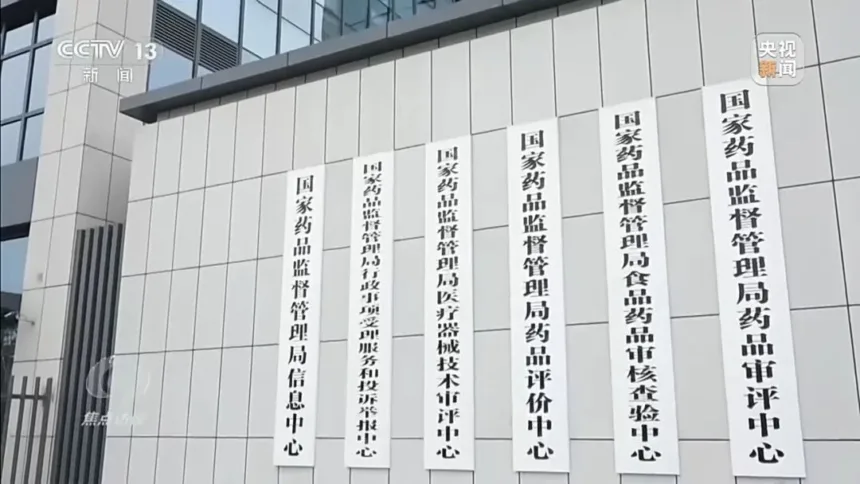 CCTV 13
新闻
央视
新闻
国家药品监督管理局信息中心
国家药品监督管理局行政事项受理服务和投诉举报中心
国家药品监督管理局医疗器械技术审评中心
国家药品监督管理局药品评价中心
国家药品监督管理局食品药品审核查验中心
国家药品监督管理局药品审评中心
焦点访谈